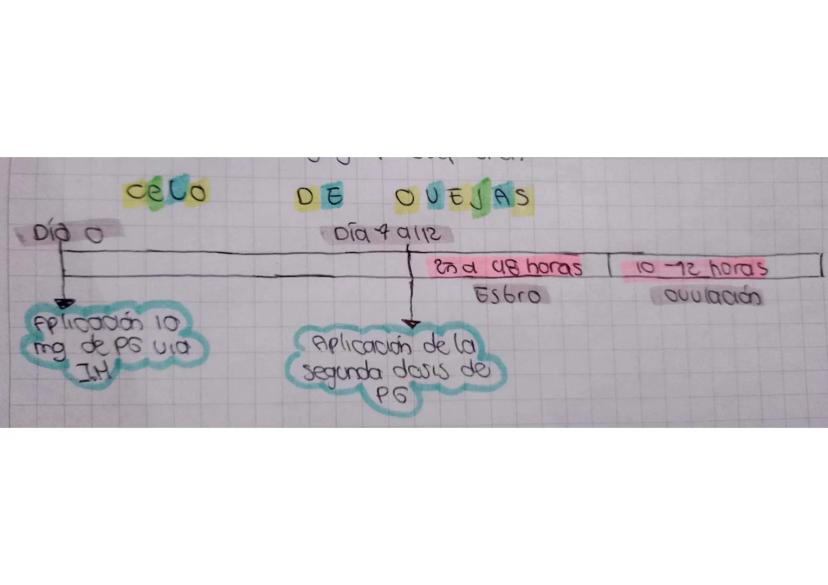 CELO DE OVEJAS
Día 0
Día 7 al 12
a 48 horas
10 -12 horas
Estro
ovulación
Aplicación 10
mg de PG via
I.M
Aplicación de la
segunda dosis de
PG